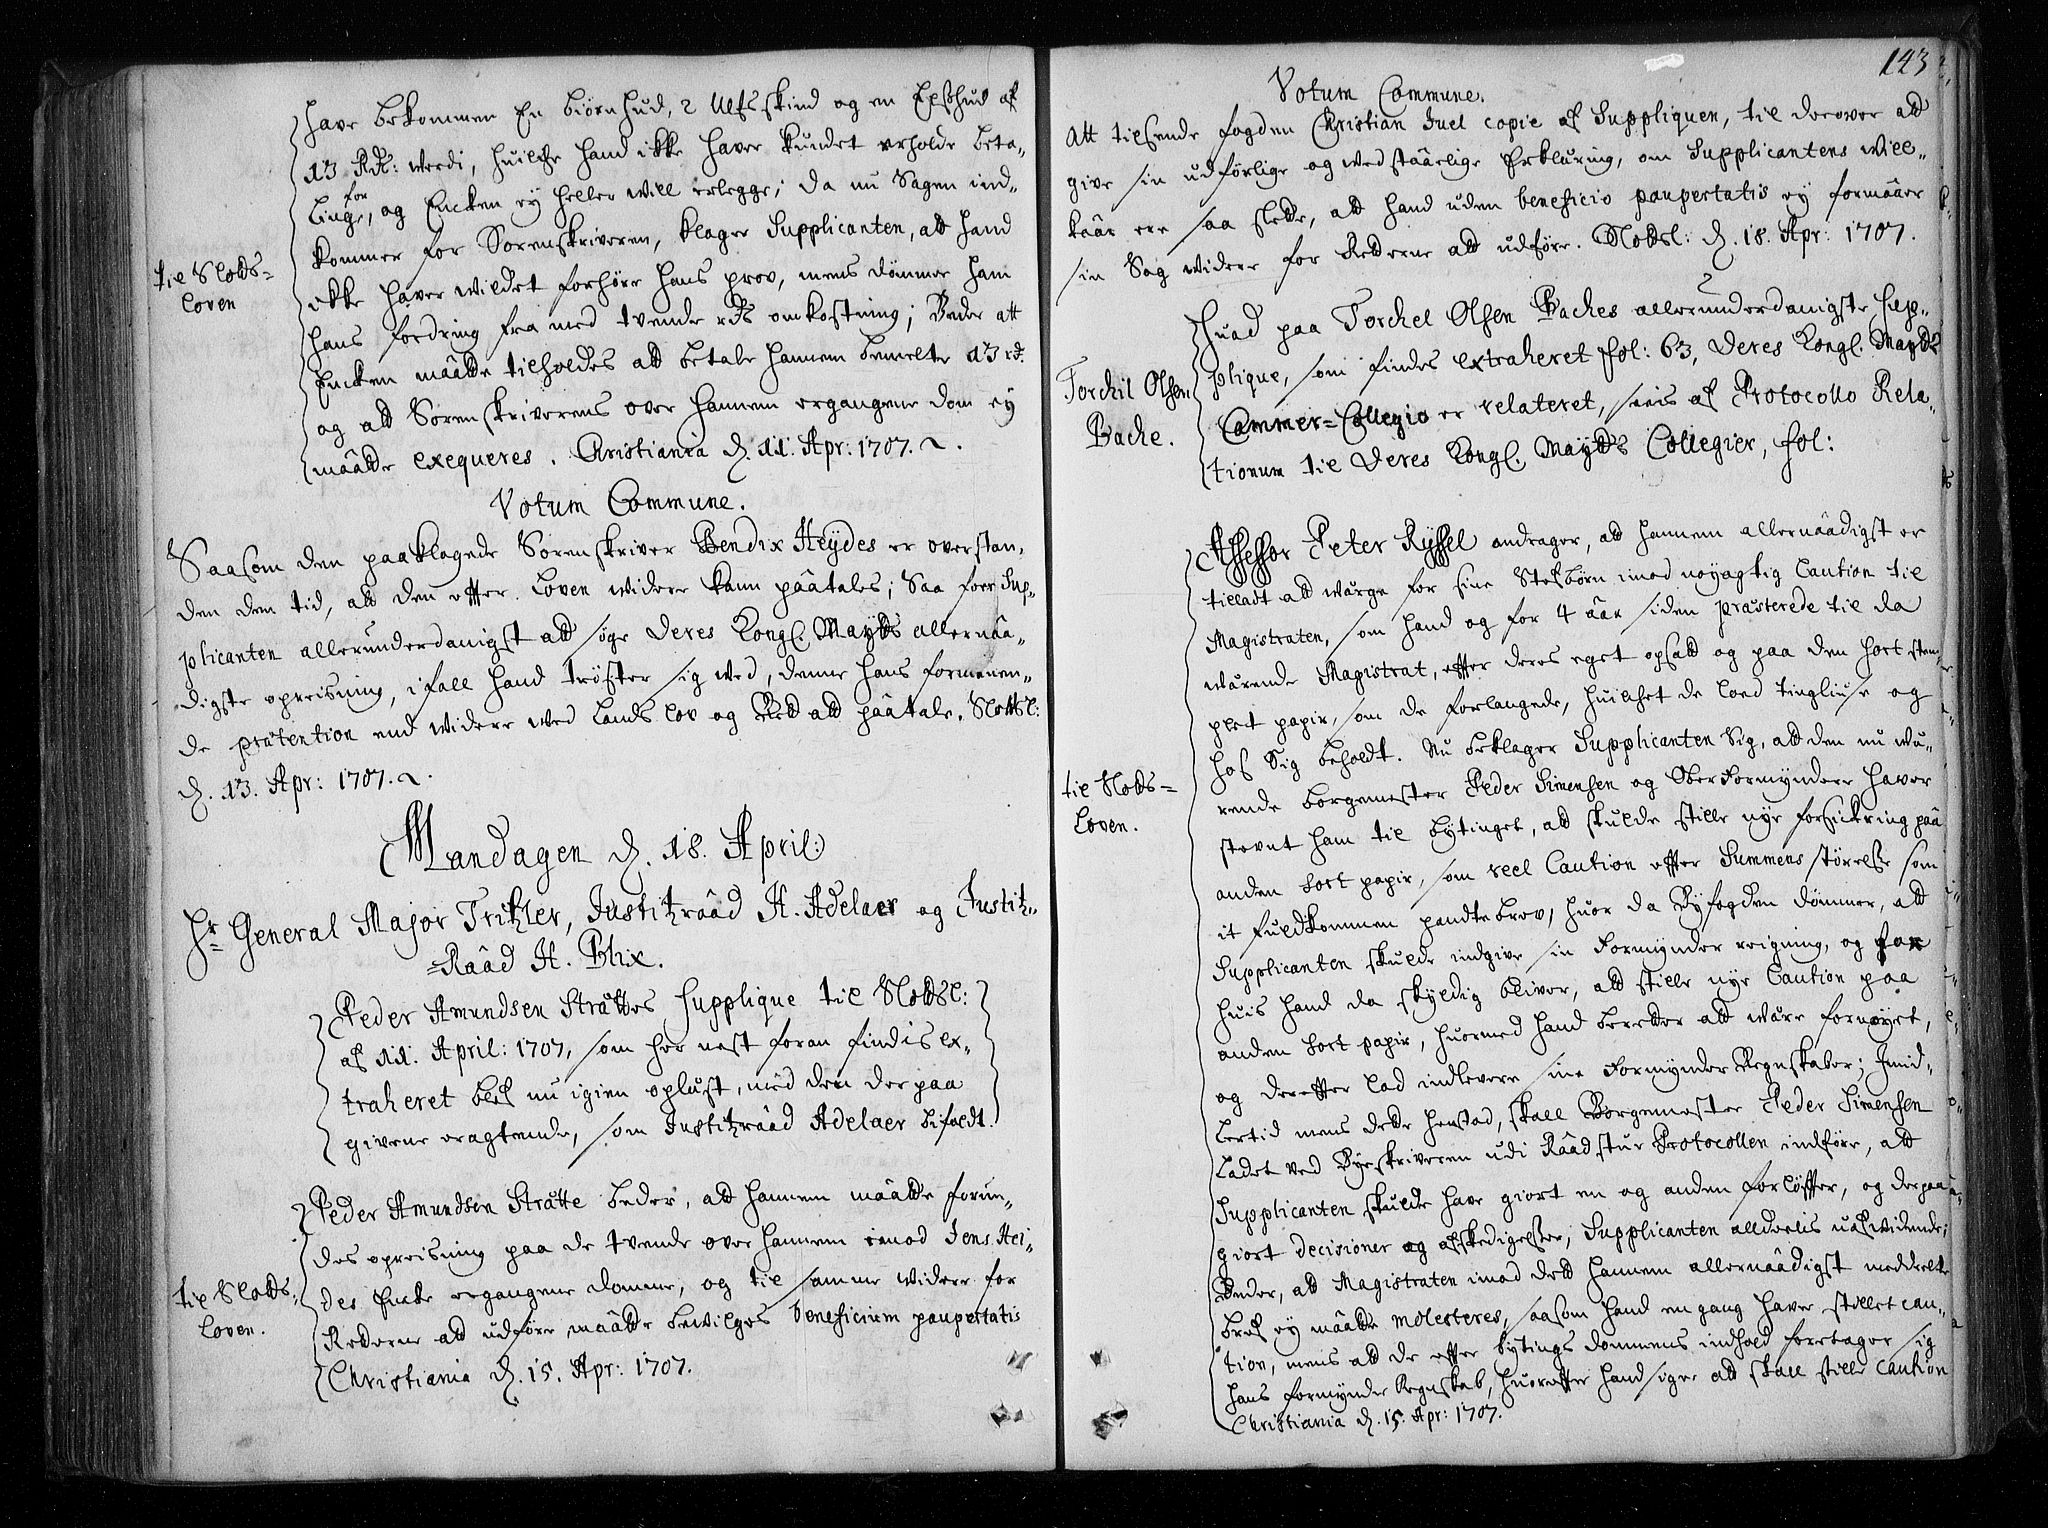 have bekommen En biørnhud, 2 Ulfsskind og en Elsshud af
13 Rdr: werdi, huilche hand ikke haver kundet erholde beta-
ling for, og Encken ey heller will erlegge; da nu Sagen ind-
kommer for Sorenskriveren, klager Supplicanten, att hand
ikke haver wildet forhøre hans prov, mens dømmer ham
hans fordring fra med tvende rdrs omkostning; Beder att
Encken måtte tilholdes att betale hannem bemelte 13 rd.
og att Sorenskriverens over hannem ergangene dom ey
måtte exequeres. Christiania d. 11. Apr: 1707.
til Slotts=
Loven
Votum Commune.
Saasom den paaklagede Sorenskriver Bendix Heydes er overstan-
den den tid, att den effter Loven widere kann påtales; Saa forr Sup-
plicanten allerunderdanigst att søge Deres Kongl. Mayts allernåa-
digste opreisning, i fall hand trøster sig wed, denne hans formenen-
de prætention end widere wed Lands lov og Rett att påtale. Slottsl:
d. 13. Apr: 1707.
Mandagen d. 18. April:
Hr General Major Tritzler, Justitzråd H. Adelaer og Justitz-
=Råd H. Blix.
Peder Amundsen Strættes Supplique til Slottsl:
af 11. April: 1707, som her nest foran findis ex-
traheret blef nu igien oplæst, med den der paa
givene eragtende, som Justitzråd Adelaer bifaldt.
Peder Amundsen Strætte beder, att hannem måtte forun-
des opreisning paa de tvende over hannem imod Jens Hei-
des Encke ergangene domme, og til samme widere for
Retterne att udføre måtte bevilges beneficium paupertatis
Christiania d. 15. Apr: 1707.
til Slotts-
Loven.
143
Votum Commune.
Att tilsende fogden Christian Juel copie af Suppliquen, til derover att
give sin udførlige og wedståelige Erklæring, om Supplicantens will-
kår ere saa slette, att hand uden beneficio paupertatis ey formåer
sin Sag widere for Retterne att udføre. Slottsl: d. 18. Apr: 1707.
Huad paa Torchel Olsen Baches allerunderdanigste Sup-
plique, som findes extraheret fol: 63, Deres Kongl. Mayts
Cammer=Collegio er relateret, sees af Protocollo Rela-
tionum til Deres Kongl. Mayts Collegier, fol:
Torchil Olsen
Bache.
Assessor Peter Ryssel andrager, att hannem allernåadigst er
tilladt att wærge for sine Stefbørn imod nøyagtig Caution til
Magistraten, som hand og for 4 år siden præsterede til da
wærende Magistrat, effter deres eget opsatt og paa den sort stem-
plet papir, som de forlangede, huilchet de loed tingliuse og
hos Sig beholdt. Nu beklager Supplicanten Sig, att den nu wæ-
rende borgemester Peder Simensen og Oberformyndere haver
stevnt ham til bytinget, att skulde stille nye forsickring på
anden sort papir, som reel Caution effter Summens størelse som
it fuldkommen pandtebrev, huor da Byfogden dømmer, att
Supplicanten skulde indgive sin Formynder reigning, og for
huis hand da skyldig bliver, att stille nye Caution paa
anden sort papir, huormed hand beretter att wære fornøyet,
og dereffter lod indlevere sine Formynder Regnskaber; Imid-
lertid mens dette henstod, skall Borgemester Peder Simensen
ladet ved Byeskriveren udi Rådstue Protocollen indføre, att
Supplicanten skulde have giort en og anden forløffter, og derpaa
giort decisioner og afskedigelser, Supplicanten alldeelis uafvidende;
Beder, att Magistraten imod dett hannem allernåadigst meddeelte
bref ey måtte molesteres, saasom hand engang haver stillet cau-
tion, mens att de effter bytings dommens indhold foretager sig
hans formynder Regnskab, huoreffter hand siger att skall stille caution
Christiania d. 15. Apr: 1707.
til Slotts=
Loven.